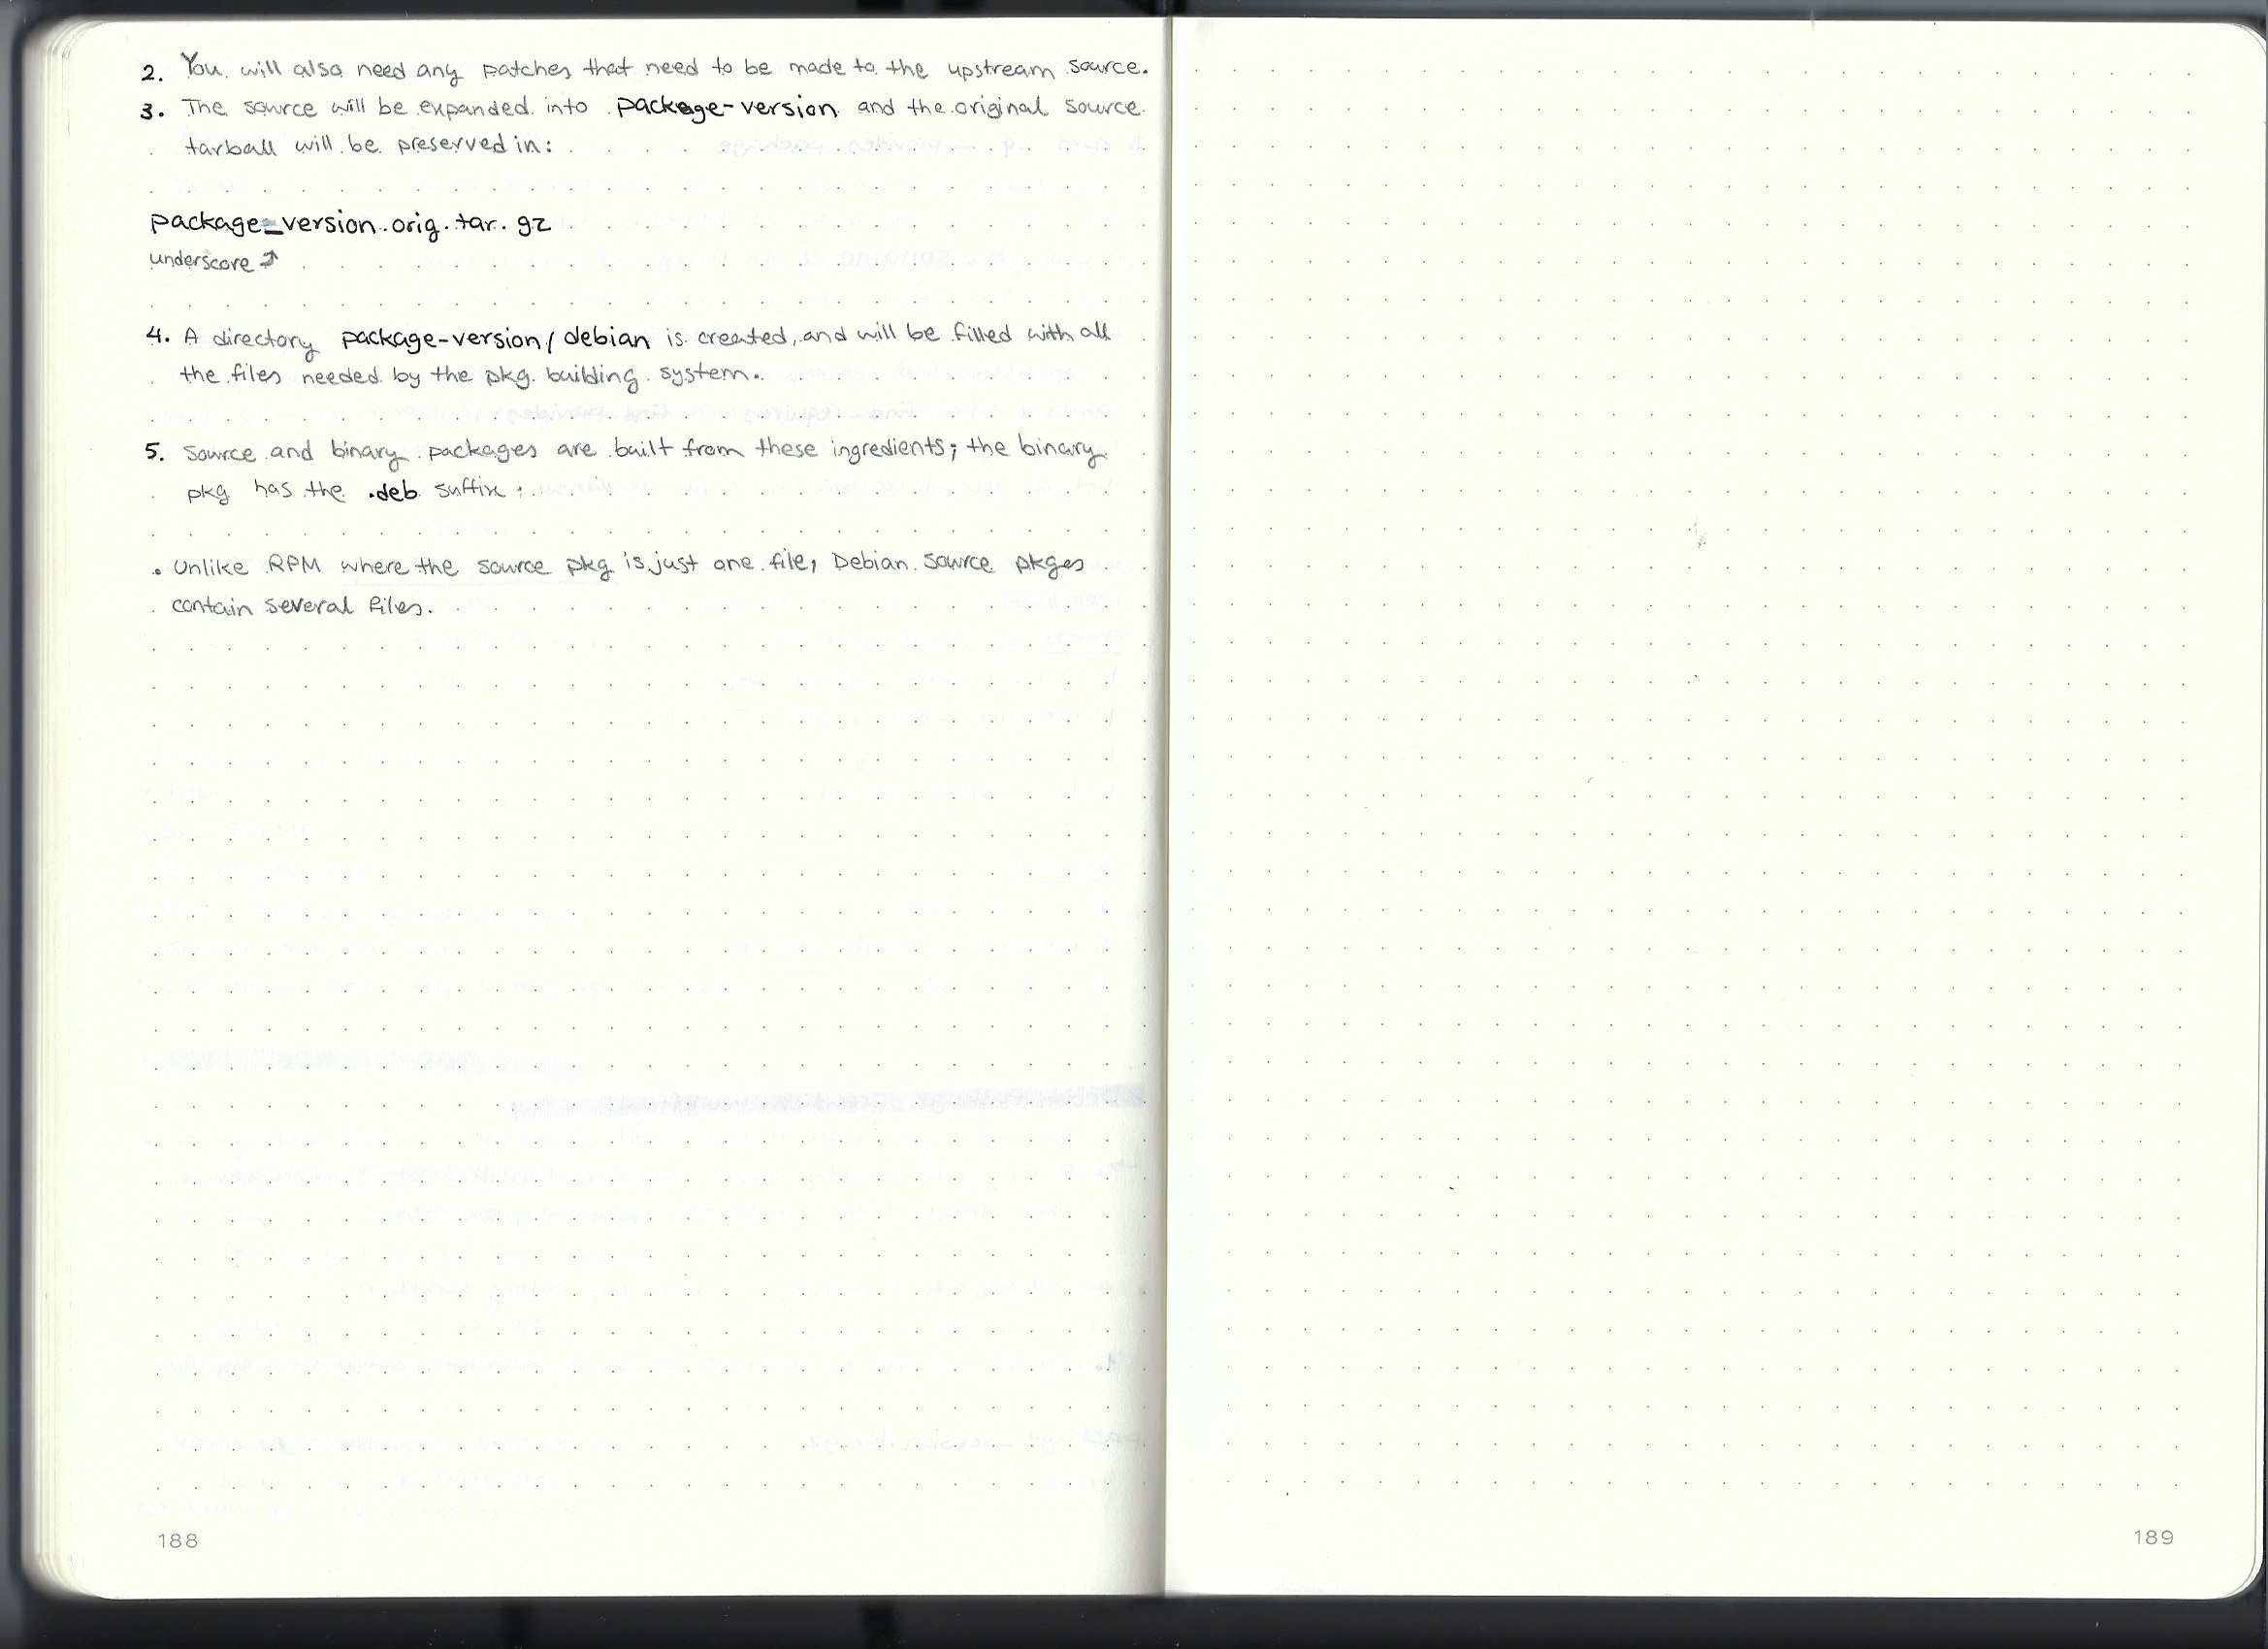 2. You will also need any patches that need to be made to the upstream source.
3. The source will be expanded into package-version and the original source
tarball will be preserved in:
package_version.orig.tar.gz
underscore
4. A directory package-version/debian is created, and will be filled with all
the files needed by the pkg building system.
5. Source and binary packages are built from these ingredients; the binary
pkg has the .deb suffix.
• Unlike RPM where the source pkg is just one file, Debian source pkges
contain several files.
188
189